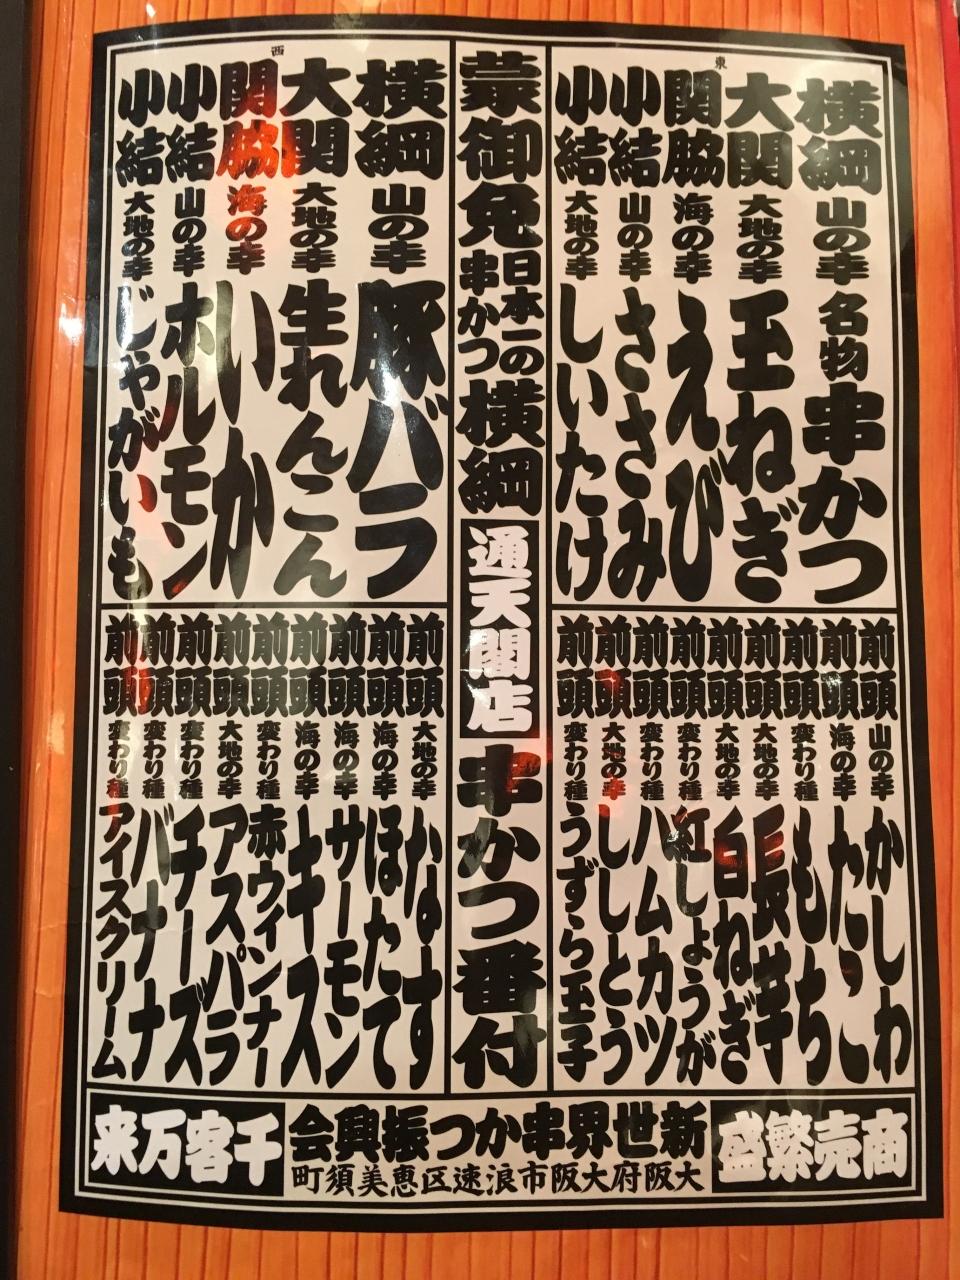 東
横綱 山の幸 名物串かつ
大関 大地の幸 玉ねぎ
関脇 海の幸 えび
小結 山の幸 ささみ
小結 大地の幸 しいたけ
前頭 山の幸 かしわ
前頭 海の幸 たこ
前頭 変わり種 もち
前頭 大地の幸 長芋
前頭 大地の幸 白ねぎ
前頭 変わり種 紅しょうが
前頭 変わり種 ハムカツ
前頭 大地の幸 ししとう
前頭 変わり種 うずら玉子
蒙御免 日本一の串かつ横綱 通天閣店 串かつ番付
西
横綱 山の幸 豚バラ
大関 大地の幸 生れんこん
関脇 海の幸 いか
小結 山の幸 ホルモン
小結 大地の幸 じゃがいも
前頭 大地の幸 なす
前頭 海の幸 ほたて
前頭 海の幸 サーモン
前頭 海の幸 キス
前頭 変わり種 赤ウィンナー
前頭 大地の幸 アスパラ
前頭 変わり種 チーズ
前頭 変わり種 バナナ
前頭 変わり種 アイスクリーム
商売繁盛
新世界串かつ振興会
大阪府大阪市浪速区恵美須町
千客万来